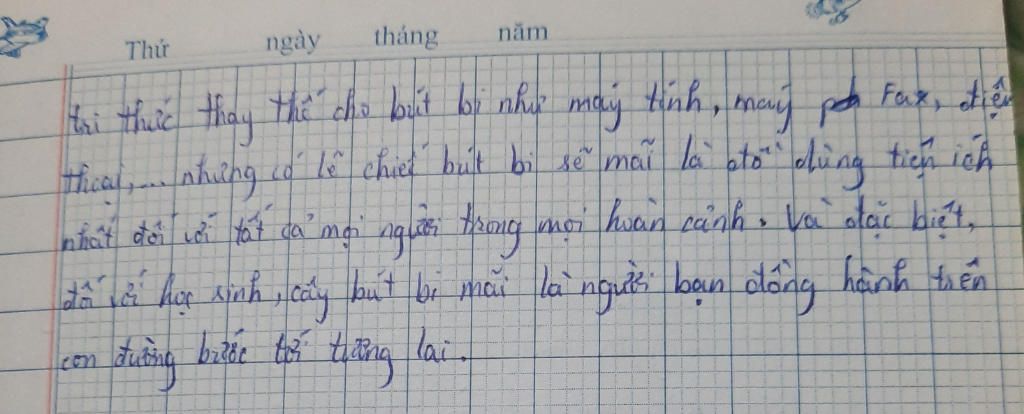 Thứ ngày tháng năm
tri thức thay thế cho bút bi như máy tính, máy Fax, điện
thoại,... nhưng có lẽ chiếc bút bi sẽ mãi là đồ dùng tiện ích
nhất đối với tất cả mọi người trong mọi hoàn cảnh. Và đặc biệt,
đối với học sinh, cây bút bi mãi là người bạn đồng hành trên
con đường bước tới tương lai.